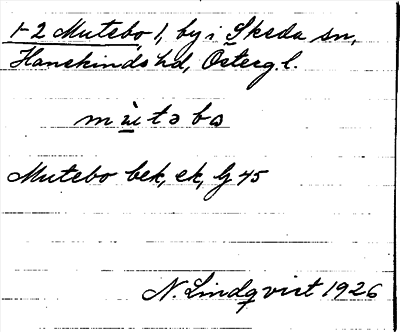 1-2 Mutebo, 1, by i Skeda sn,
Hanekinds hd, Österg. l.
Mutebo bek, ek, lg 45
N. Lindqvist 1926